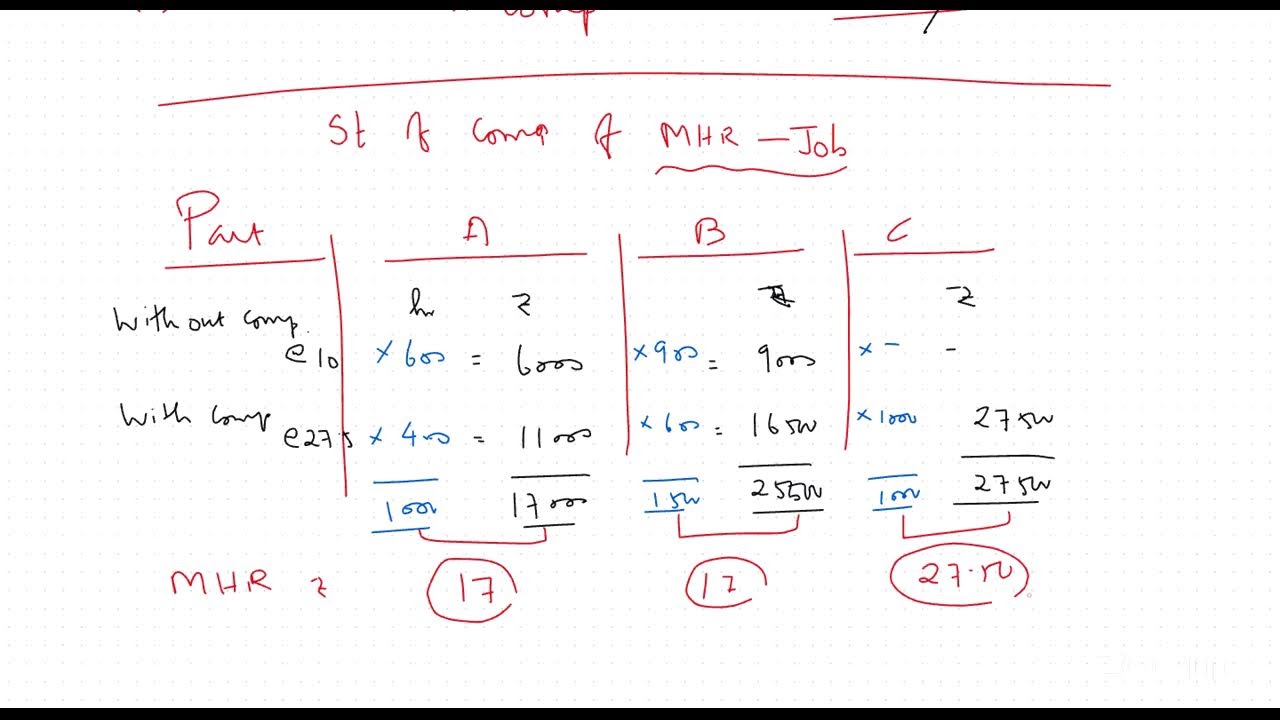 comp
St of comp of MHR - Job
Part A B C
hr ₹ ₹ ₹
Without comp.
@ 10 × 600 = 6000 × 900 = 9000 × - -
With comp
@ 27.5 × 400 = 11000 × 600 = 16500 × 1000 27500
1000 17000 1500 25500 1000 27500
MHR ₹ 17 17 27.50